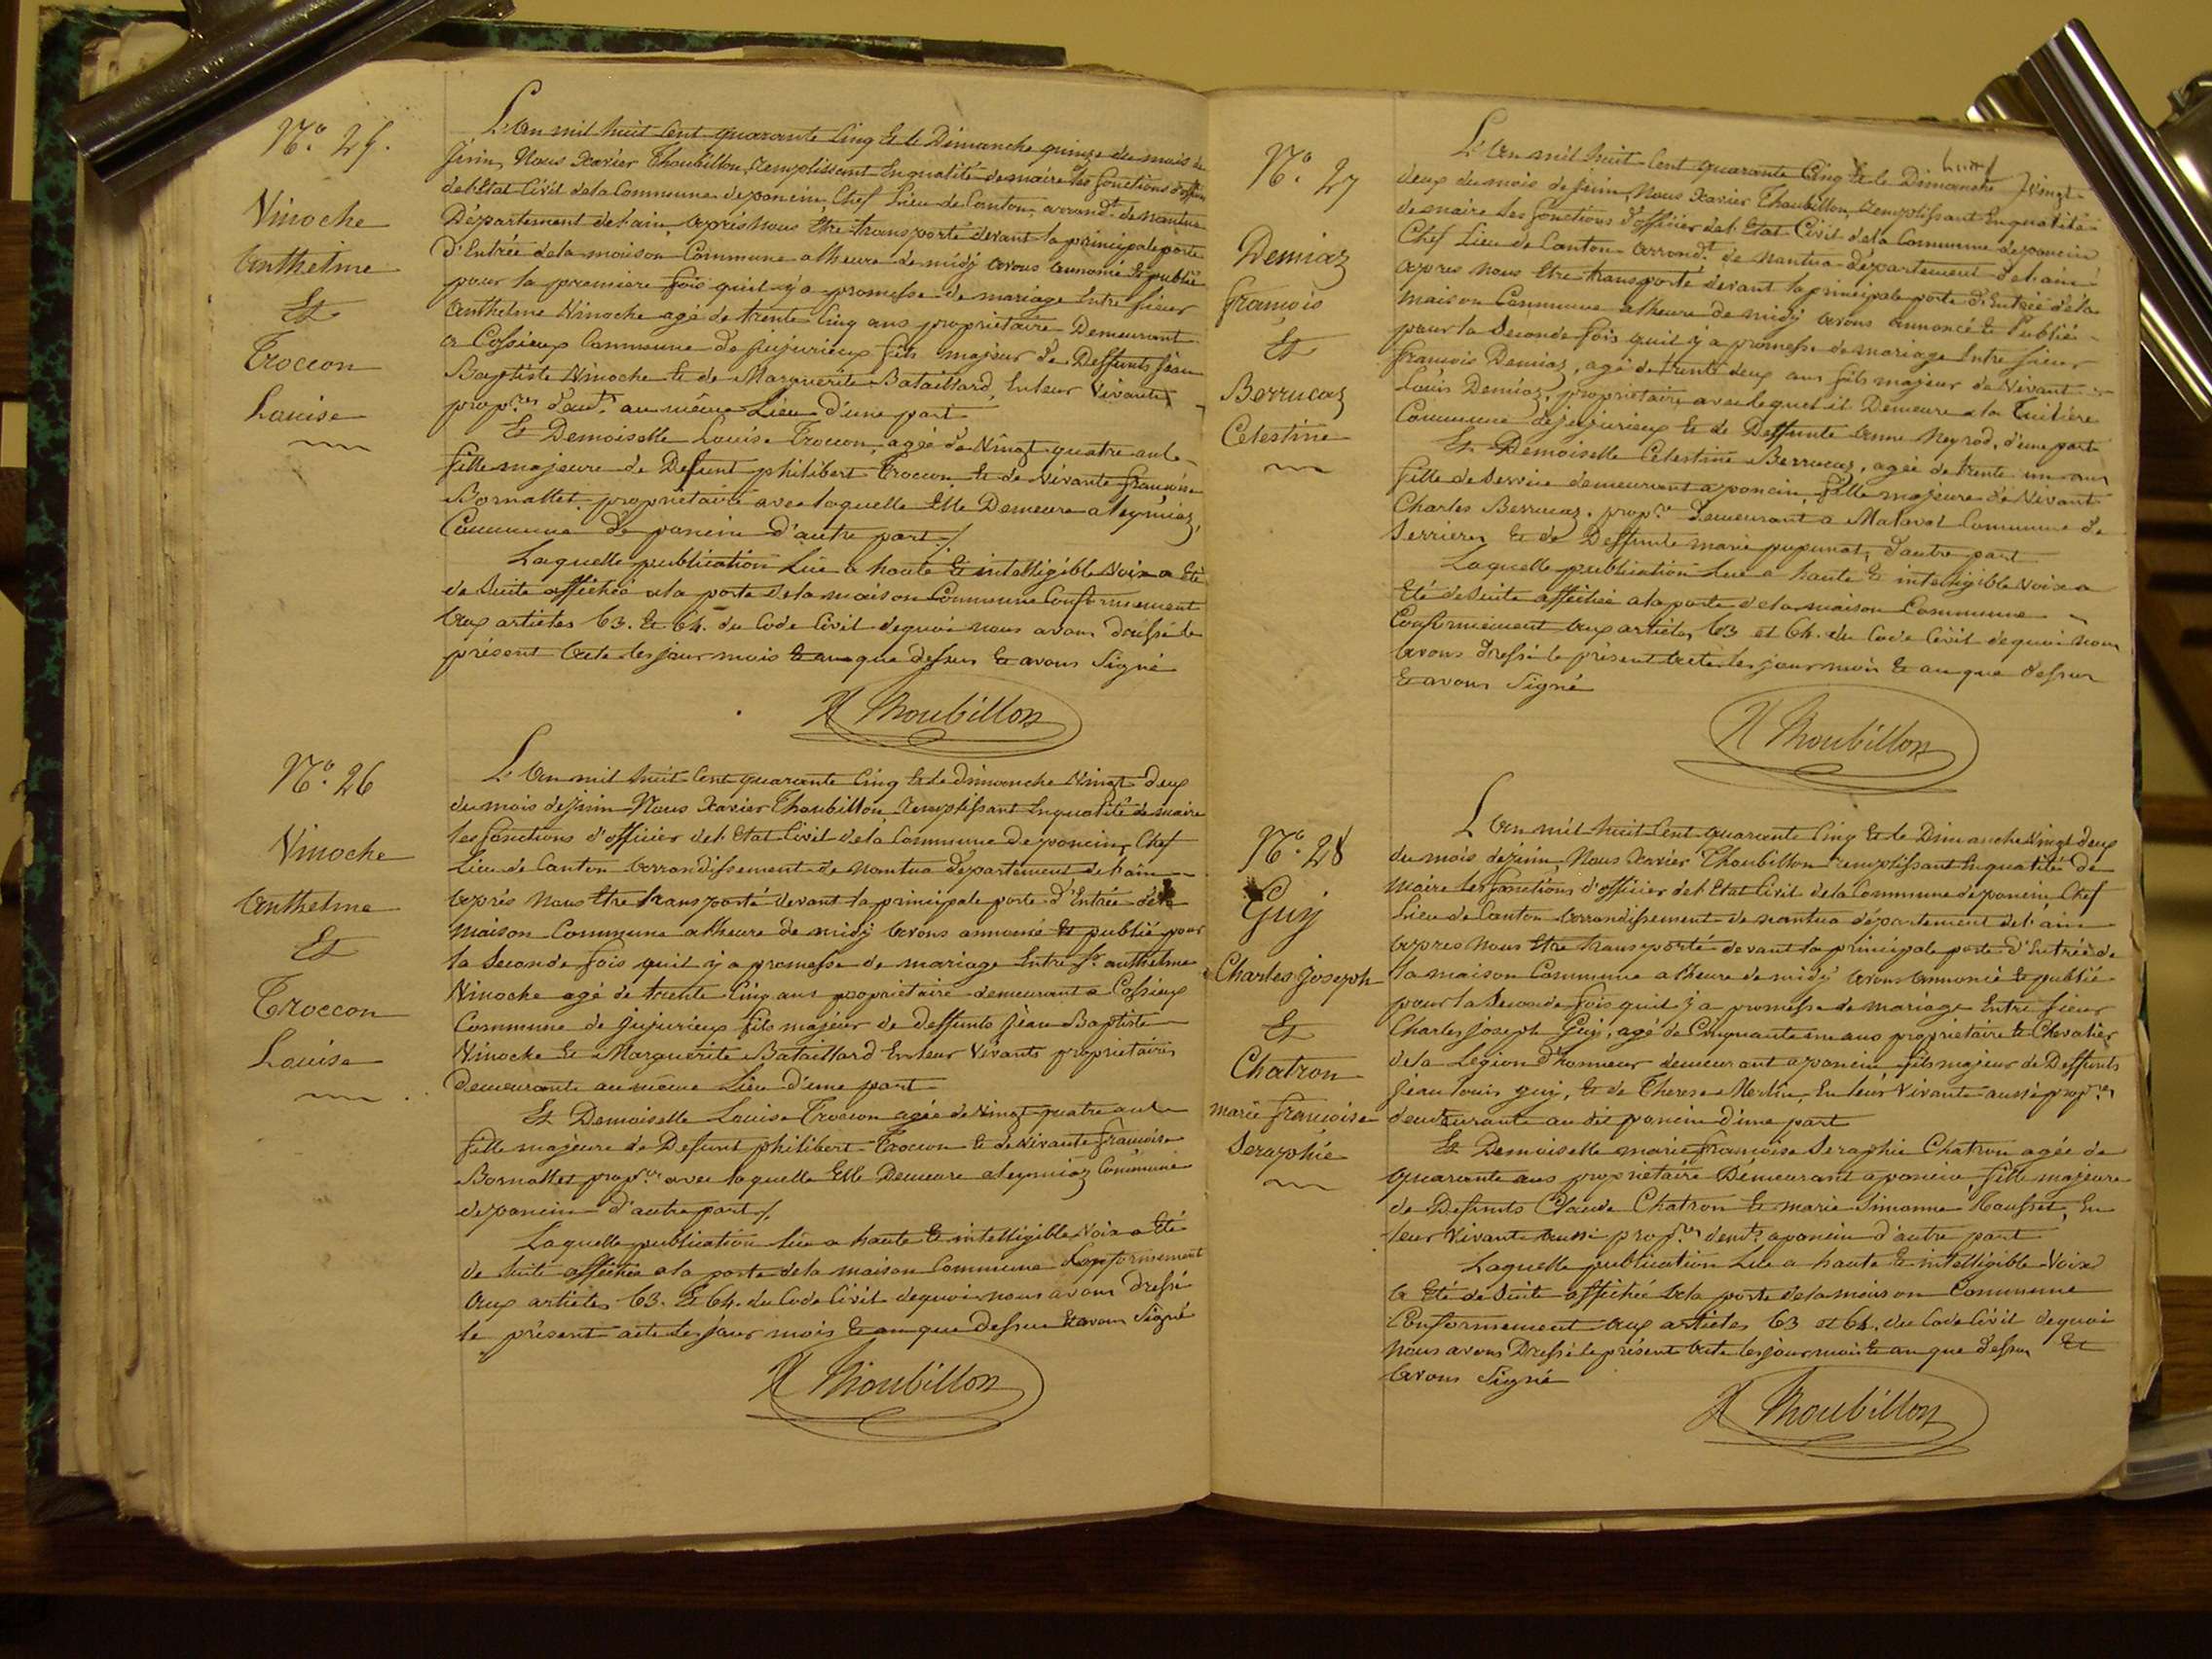 N.° 25.
Vinoche
Anthelme
Et
Troccon
Louise
L'An mil huit Cent quarante Cinq Et le Dimanche quinze du mois de
Juin, Nous Xavier Thoubillon, remplissant En qualité de maire les fonctions d'officier
de l'Etat Civil de la Commune de poncin, Chef Lieu de Canton, arrond.t de nantua
Département de l'ain, Après nous Etre transporté devant la principale porte
d'Entrée de la maison Commune a lheure de midÿ Avons annoncé Et publié
pour la premiere fois quil ÿ a promesse de mariage Entre Sieur
Anthelme Vinoche agé de trente Cinq ans proprietaire Demeurant
a Cossieux Commune de Jujurieux fils majeur de Deffunts Jean
Baptiste Vinoche Et de Marguerite Bataillard, En leur Vivants
prop.res d'aud.t au même Lieu d'une part
Et Demoiselle Louise Troccon, agée de Vingt quatre ans
fille majeure de Defunt philibert Troccon Et de Vivante françoise
Bornattet, proprietaire avec laquelle Elle Demeure a leymiaz,
Commune de poncin d'autre part ./
Laquelle publication Lue a haute Et intelligible Voix a Eté
de Suite affichée a la porte de la maison Commune Conformement
Aux articles 63. Et 64. du Code Civil de quoi nous avons dressé le
présent Acte les jour mois Et an que dessus Et avons Signé
X Thoubillon
N.° 26
Vinoche
Anthelme
Et
Troccon
Louise
L'An mil huit Cent quarante Cinq Et le Dimanche Vingt deux
du mois de juin Nous Xavier Thoubillon remplissant En qualité de maire
les fonctions d'officier de l'Etat Civil de la Commune de poncin, Chef
Lieu de Canton Arrondissement de Nantua département de l'ain
Après Nous Etre transporté devant la principale porte d'Entrée de la
maison Commune a lheure de midÿ Avons annoncé Et publié pour
la Seconde fois quil ÿ a promesse de mariage Entre S.r anthelme
Vinoche agé de trente Cinq ans proprietaire demeurant a Cossieux
Commune de Jujurieux fils majeur de deffunts Jean Baptiste
Vinoche Et Marguerite Bataillard En leur Vivants proprietaires
Demeurants au même Lieu d'une part
Et Demoiselle Louise Troccon agée de Vingt quatre ans
fille majeure de Defunt philibert Troccon Et de Vivante françoise
Bornattet prop.re avec laquelle Elle Demeure a leymiaz Commune
de poncin d'autre part ./.
Laquelle publication lue a haute Et intelligible Voix a Eté
de suite affichée a la porte de la maison Commune Conformement
Aux articles 63. Et 64. du Code Civil de quoi nous avons dressé
le présent acte les jour mois Et an que dessus Et avons Signé
X Thoubillon
N.° 27
Demiaz
françois
Et
Berrucaz
Celestine
L'An mil huit Cent quarante Cinq Et le Dimanche Vingt
deux du mois de juin, Nous Xavier Thoubillon, remplissant En qualité
de maire les fonctions d'officier de l'Etat Civil de la Commune de poncin
Chef Lieu de Canton Arrond.t de Nantua département de l'ain
Après nous Etre transporté devant la principale porte d'Entrée de la
maison Commune a lheure de midÿ Avons annoncé Et Publié
pour la Seconde fois quil ÿ a promesse de mariage Entre Sieur
françois Demiaz, agé de trente deux ans fils majeur de Vivant
Louis Demiaz, proprietaire avec lequel il Demeure a la Tuilière
Commune de jujurieux Et de Deffunte Anne Neyrod, d'une part
Et Demoiselle Celestine Berrucaz, agée de trente un ans
fille de Service demeurant a poncin, fille majeure de Vivant
Charles Berrucaz, prop.re demeurant a Malaval Commune de
Serrieres Et de Deffunte marie pupunat, d'autre part
Laquelle publication lue a haute Et intelligible Voix a
Eté de Suite affichée a la porte de la maison Commune
Conformement Aux articles 63 et 64. du Code Civil de quoi nous
Avons Dressé le présent Acte les jour mois Et an que dessus
Et avons Signé
X Thoubillon
N.° 28
Guÿ
Charles Joseph
Et
Chatron
marie françoise
Seraphie
L'An mil huit Cent quarante Cinq Et le Dimanche Vingt deux
du mois de juin, Nous Xavier Thoubillon remplissant En qualité de
Maire les fonctions d'officier de l'Etat Civil de la Commune de poncin Chef
Lieu de Canton Arrondissement de nantua département de l'ain
Après nous Etre transporté devant la principale porte d'Entrée de
la maison Commune a lheure de midÿ Avons Annoncé Et publié
pour la Seconde fois quil ÿ a promesse de mariage Entre Sieur
Charles Joseph Guÿ, agé de Cinquante un ans proprietaire Et Chevalier
de la Légion d'honneur demeurant a poncin fils majeur de Deffunts
Jean louis guÿ, Et de Therese Merlin, En leur Vivants aussi prop.res
demeurants au dit poncin d'une part
Et Demoiselle marie françoise Seraphie Chatron agée de
quarante ans proprietaire Demeurant a poncin, fille majeure
de Defunts Claude Chatron Et marie Simonne Rousset, En
leur Vivants aussi prop.res dem.ts a poncin d'autre part
Laquelle publication Lue a haute Et intelligible Voix
a Eté de Suite affichée a la porte de la maison Commune
Conformement Aux articles 63 et 64. du Code Civil de quoi
nous avons Dressé le présent Acte les jour mois Et an que dessus Et
Avons Signé
X Thoubillon